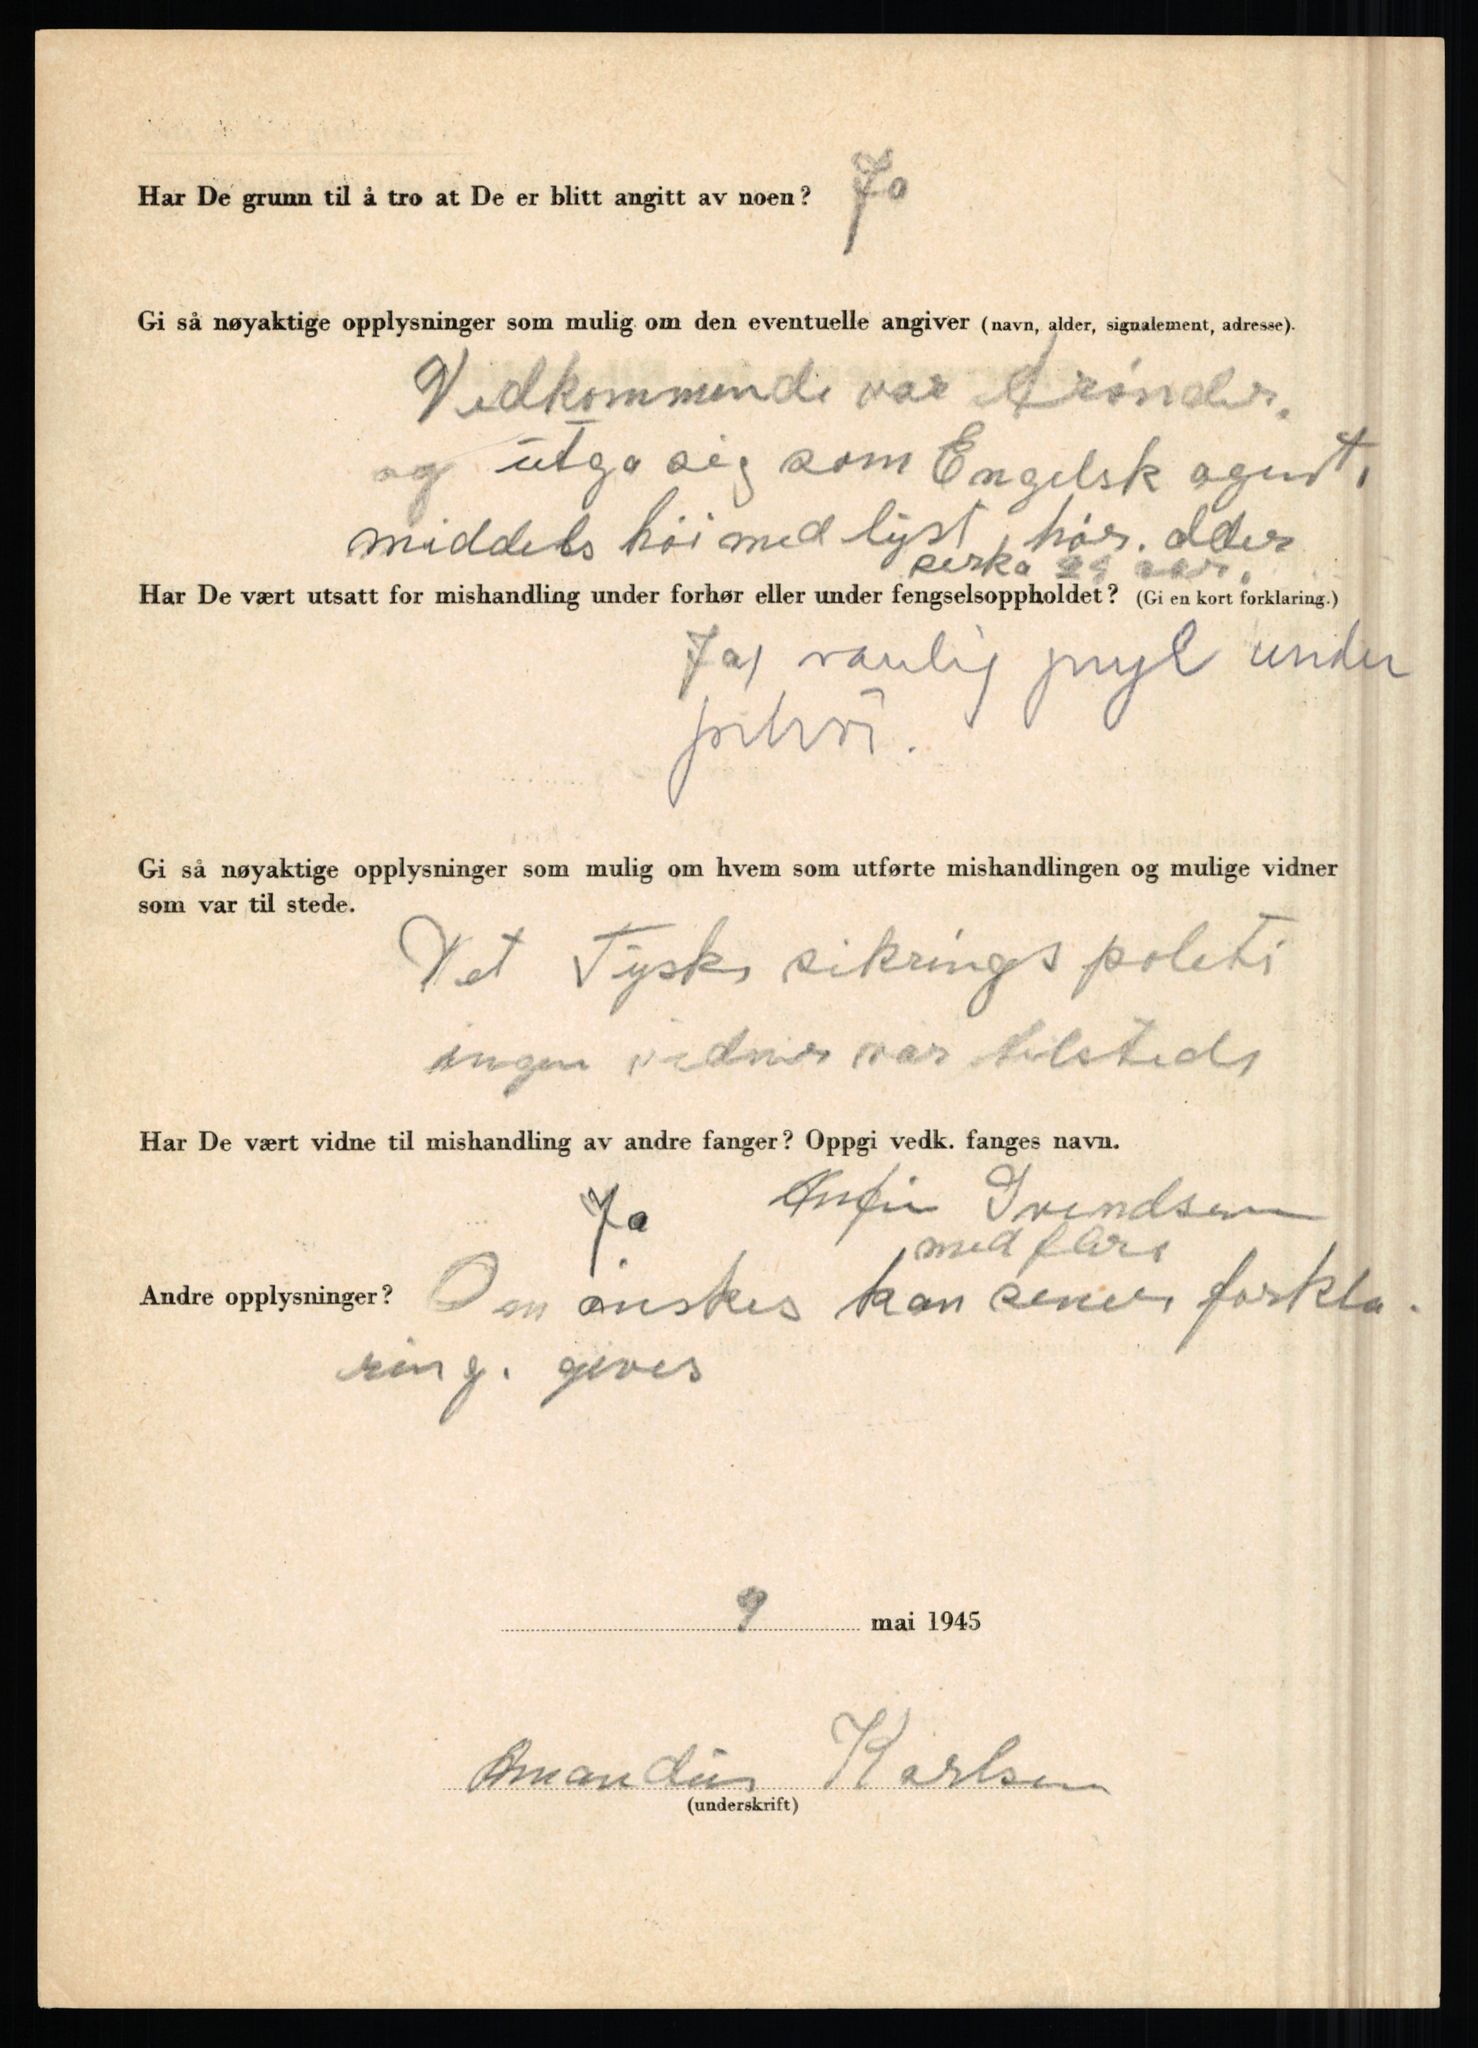 Har De grunn til å tro at De er blitt angitt av noen? Ja
Gi så nøyaktige opplysninger som mulig om den eventuelle angiver (navn, alder, signalement, adresse).
Vedkommende var Trønder.
og utga sig som Engelsk agent,
middels höi med lyst hår. alder
serka aar.
Har De vært utsatt for mishandling under forhør eller under fengselsoppholdet? (Gi en kort forklaring.)
Ja, vanlig pryl under
Gi så nøyaktige opplysninger som mulig om hvem som utførte mishandlingen og mulige vidner
som var til stede.
Vet Tysk sikrings poleti
ingen vidner var tilstede
Har De vært vidne til mishandling av andre fanger? Oppgi vedk. fanges navn.
Ja Anfin Svendsen
med flere
Andre opplysninger? Om önskes kan senere forkla-
ring. gives
9 mai 1945
Amandus Karlsen
(underskrift)